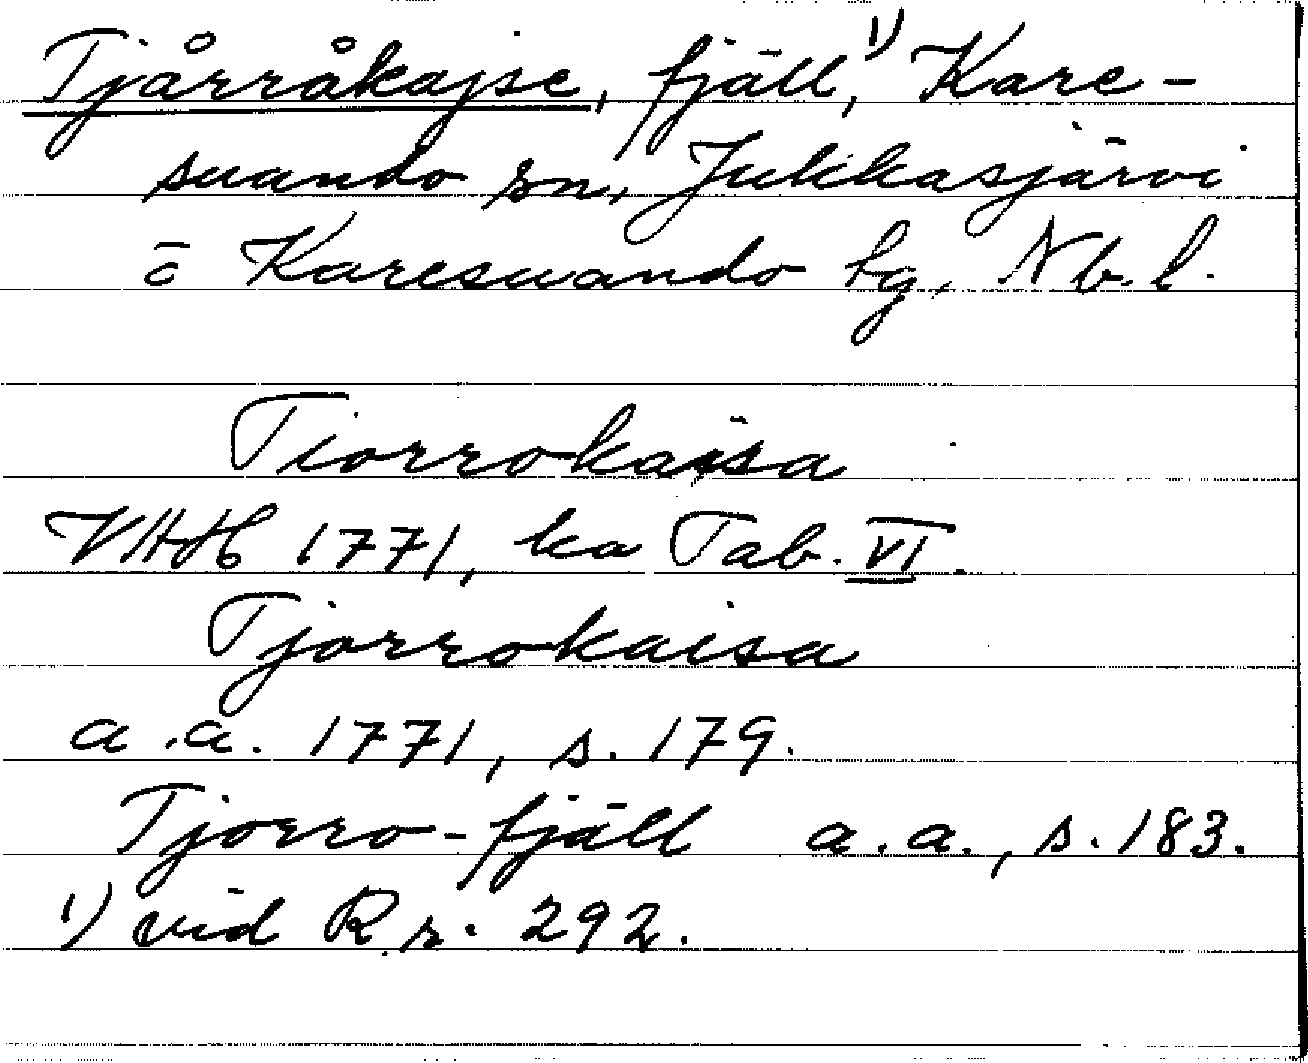 Tjårråkajse, fjäll,¹⁾ Kare-
suando sn, Jukkasjärvi
o Karesuando lg, Nb. l.
Tiorrokaisa
VHH 1771, ka Tab. VI.
Tjorrokaisa
a.a. 1771, s. 179.
Tjorro-fjäll a.a., s. 183.
¹⁾ vid R.r. 292.